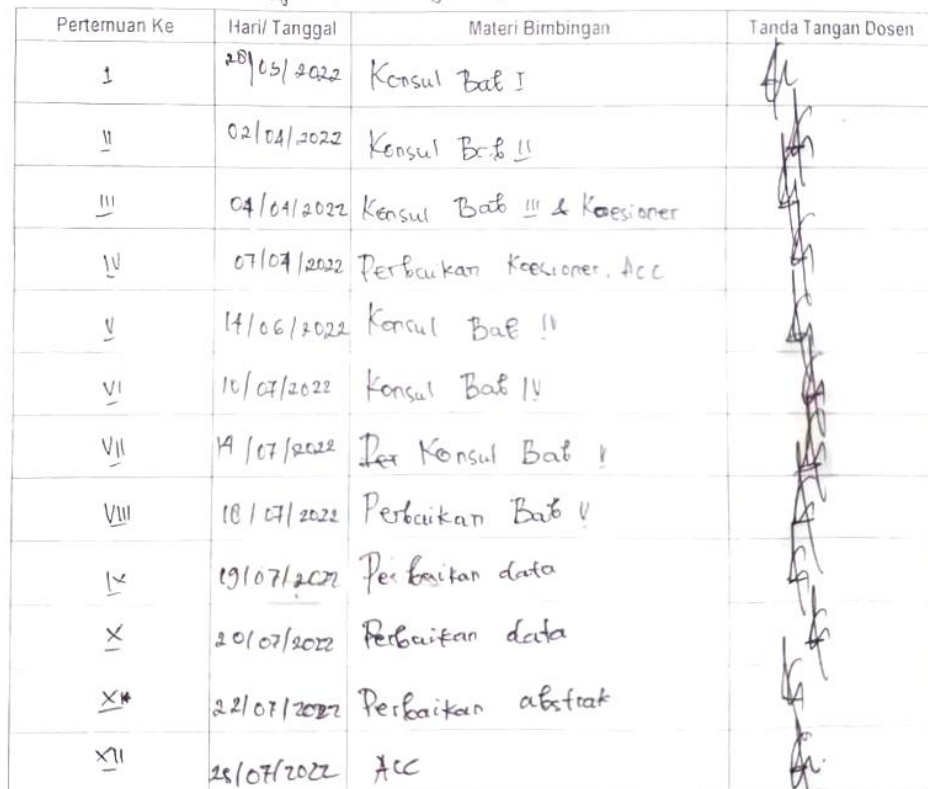 Pertemuan Ke Hari/ Tanggal Materi Bimbingan Tanda Tangan Dosen
1 28/03/2022 Konsul Bab I
II 02/04/2022 Konsul Bab II
III 04/04/2022 Konsul Bab III & Koesioner
IV 07/04/2022 Perbaikan Koesioner. Acc
V 14/06/2022 Konsul Bab IV
VI /07/2022 Konsul Bab IV
VII 14/07/2022 Konsul Bab V
VIII 18/07/2022 Perbaikan Bab V
IX 19/07/2022 Perbaikan data
X 20/07/2022 Perbaikan data
XI 22/07/2022 Perbaikan abstrak
XII 28/07/2022 ACC